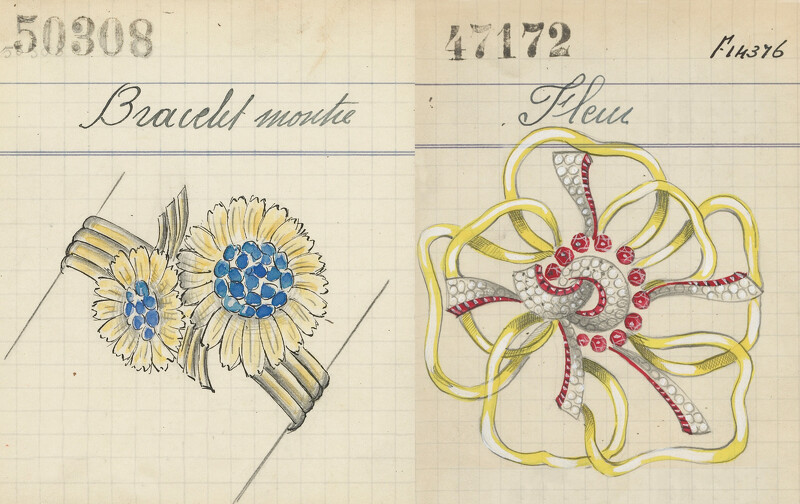 50308
Bracelet montre
47172
F14376
Fleur